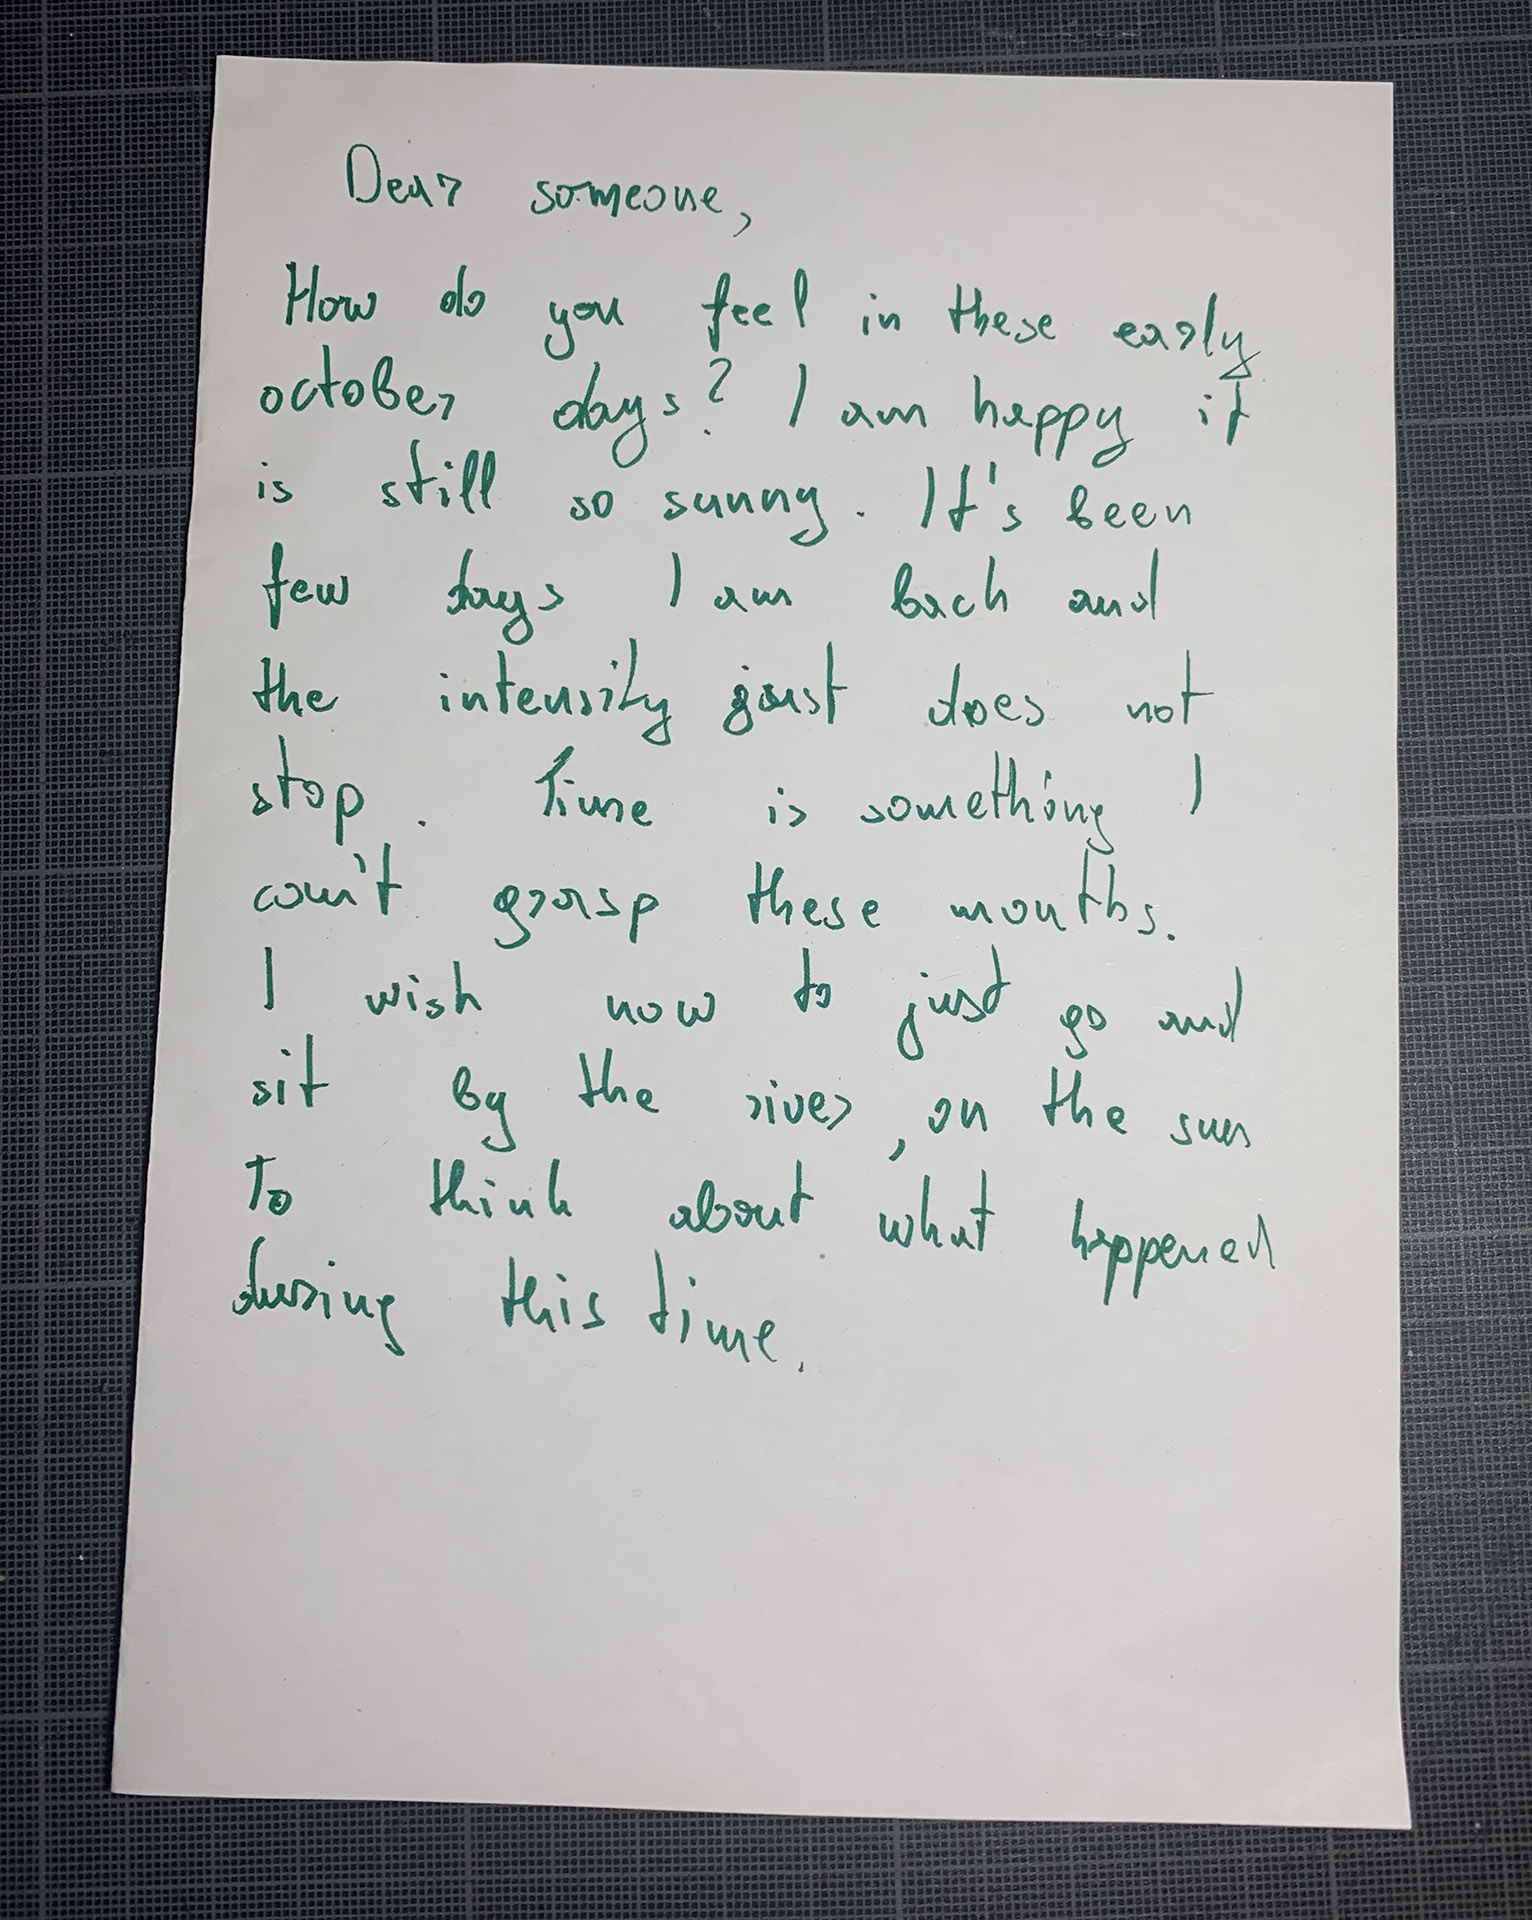 Dear someone,
How do you feel in these early
october days? I am happy it
is still so sunny. It's been
few days I am back and
the intensity just does not
stop. Time is something I
can't grasp these months.
I wish now to just go and
sit by the river, on the sun
To think about what happened
during this time.